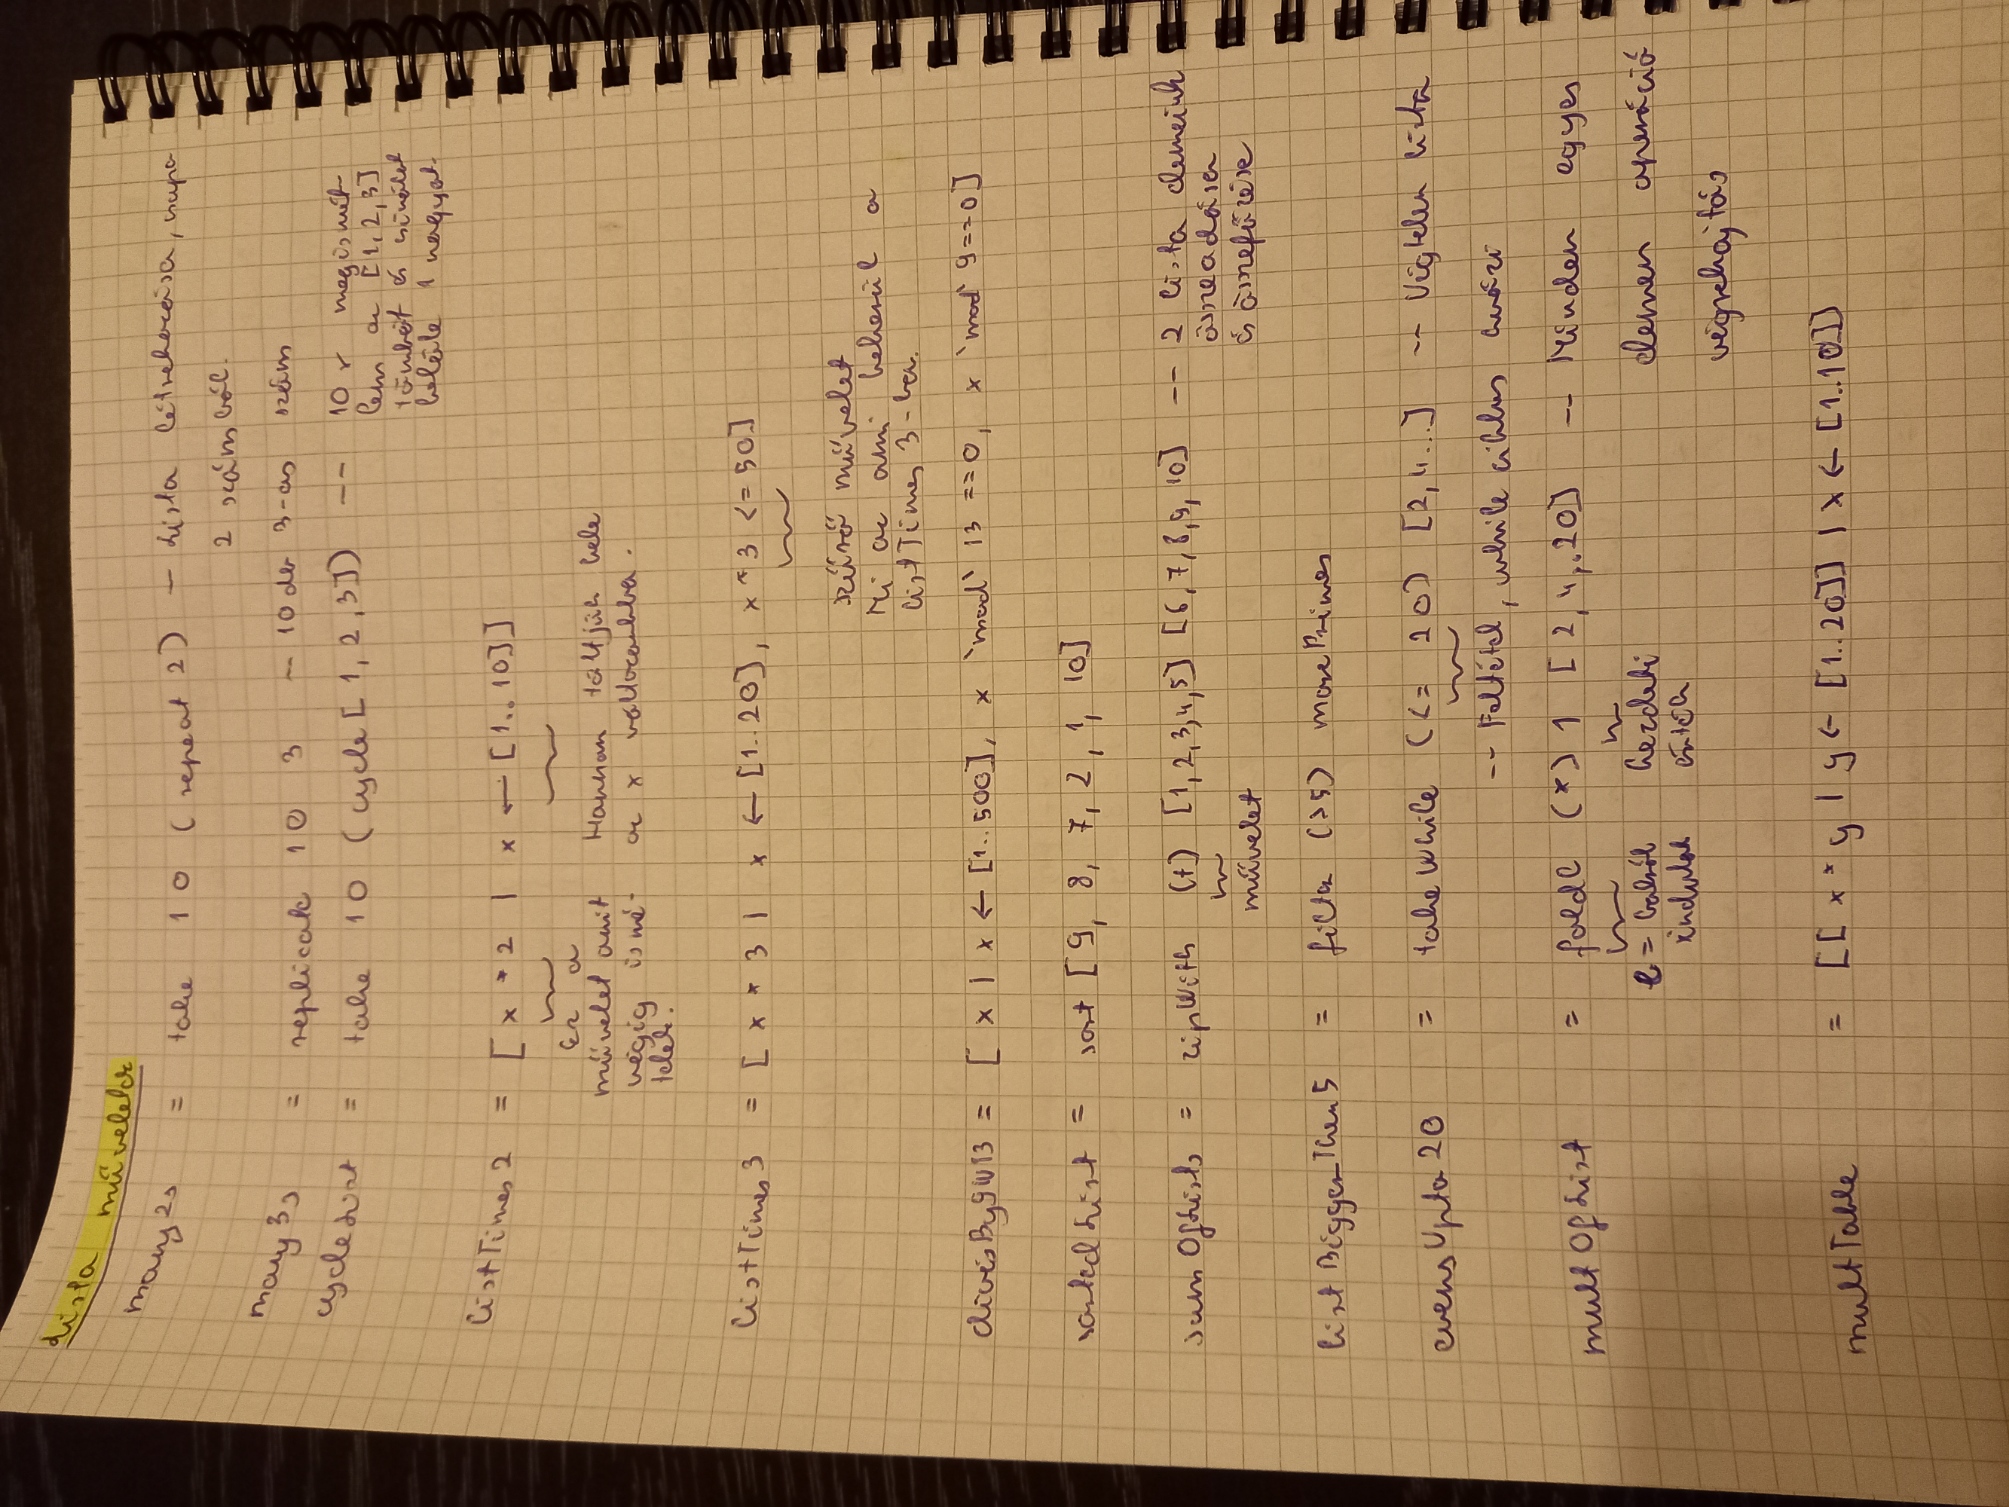 Lista műveletek
many2s = take 10 (repeat 2) - Lista létrehozása, csupa
2 számból.
many3s = replicate 10 3 -- 10 db 3-as szám
cycleList = take 10 (cycle [1,2,3]) -- 10 x megismét-
lem az [1,2,3]
tömböt és csinálok
belőle 1 nagyot.
listTimes2 = [x * 2 | x <- [1..10]]
Ez a
művelet amit
végig ismé-
telek.
Honnan töltjük bele
az x változónkba.
listTimes3 = [x * 3 | x <- [1..20], x * 3 <= 50]
szűrő művelet
Mi az ami bekerül a
listTimes3-ba.
divisBy9N13 = [x | x <- [1..500], x `mod` 13 == 0, x `mod` 9 == 0]
sortedList = sort [9, 8, 7, 2, 1, 10]
sumOfLists = zipWith (+) [1,2,3,4,5] [6,7,8,9,10] -- 2 lista elemeink
összeadása
és összefűzése
művelet
listBiggerThen5 = filter (>5) morePrimes
evensUpto20 = takeWhile (<= 20) [2,4...] -- Végtelen lista
-- Feltétel, while ciklus kvázi
multOfList = foldl (*) 1 [2,4,..20] -- Minden egyes
elemen operáció
végrehajtás
l = balról
indulok
kezdeti
érték
multTable = [[x * y | y <- [1..20]] | x <- [1..10]]